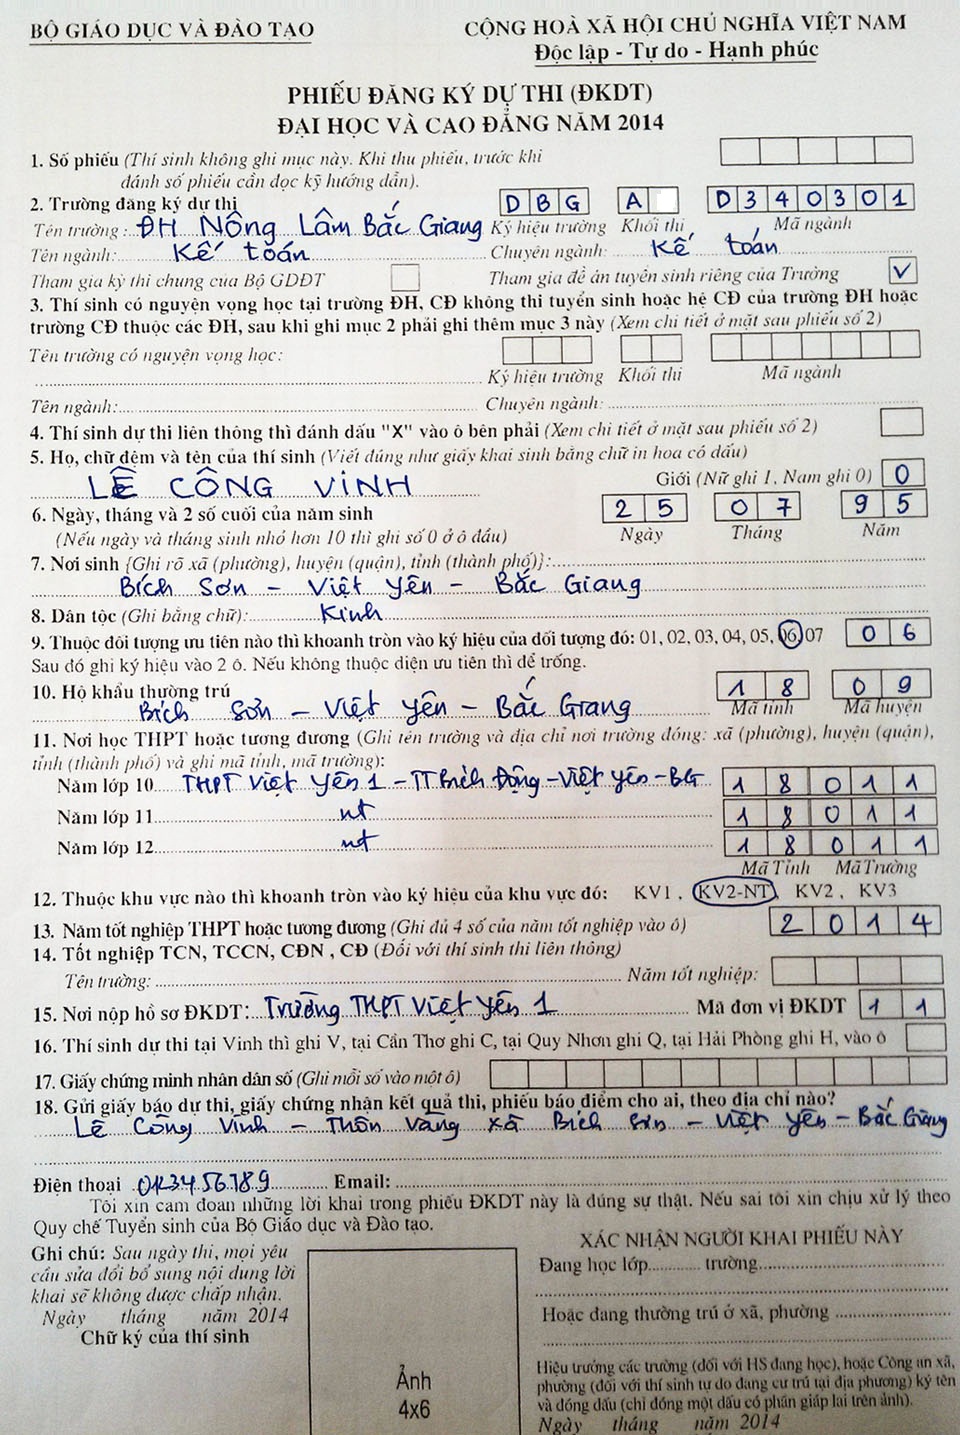 BỘ GIÁO DỤC VÀ ĐÀO TẠO
CỘNG HOÀ XÃ HỘI CHỦ NGHĨA VIỆT NAM
Độc lập - Tự do - Hạnh phúc
PHIẾU ĐĂNG KÝ DỰ THI (ĐKDT)
ĐẠI HỌC VÀ CAO ĐẲNG NĂM 2014
1. Số phiếu (Thí sinh không ghi mục này. Khi thu phiếu, trước khi
đánh số phiếu cần đọc kỹ hướng dẫn).
2. Trường đăng ký dự thi D B G A D 3 4 0 3 0 1
Tên trường: ĐH Nông Lâm Bắc Giang Ký hiệu trường Khối thi Mã ngành
Tên ngành: Kế toán Chuyên ngành: Kế toán
Tham gia kỳ thi chung của Bộ GDĐT Tham gia đề án tuyển sinh riêng của Trường V
3. Thí sinh có nguyện vọng học tại trường ĐH, CĐ không thi tuyển sinh hoặc hệ CĐ của trường ĐH hoặc
trường CĐ thuộc các ĐH, sau khi ghi mục 2 phải ghi thêm mục 3 này (Xem chi tiết ở mặt sau phiếu số 2)
Tên trường có nguyện vọng học:
Ký hiệu trường Khối thi Mã ngành
Tên ngành: Chuyên ngành:
4. Thí sinh dự thi liên thông thì đánh dấu "X" vào ô bên phải (Xem chi tiết ở mặt sau phiếu số 2)
5. Họ, chữ đệm và tên của thí sinh (Viết đúng như giấy khai sinh bằng chữ in hoa có dấu)
LÊ CÔNG VINH Giới (Nữ ghi 1, Nam ghi 0) 0
6. Ngày, tháng và 2 số cuối của năm sinh 2 5 0 7 9 5
(Nếu ngày và tháng sinh nhỏ hơn 10 thì ghi số 0 ở ô đầu) Ngày Tháng Năm
7. Nơi sinh {Ghi rõ xã (phường), huyện (quận), tỉnh (thành phố)}:
Bích Sơn - Việt Yên - Bắc Giang
8. Dân tộc (Ghi bằng chữ): Kinh
9. Thuộc đối tượng ưu tiên nào thì khoanh tròn vào ký hiệu của đối tượng đó: 01, 02, 03, 04, 05, 06, 07 0 6
Sau đó ghi ký hiệu vào 2 ô. Nếu không thuộc diện ưu tiên thì để trống.
10. Hộ khẩu thường trú 1 8 0 9
Bích Sơn - Việt Yên - Bắc Giang Mã tỉnh Mã huyện
11. Nơi học THPT hoặc tương đương (Ghi tên trường và địa chỉ nơi trường đóng: xã (phường), huyện (quận),
tỉnh (thành phố) và ghi mã tỉnh, mã trường):
Năm lớp 10 THPT Việt Yên 1 - TT Bích Động - Việt Yên - BG 1 8 0 1 1
Năm lớp 11 nt 1 8 0 1 1
Năm lớp 12 nt 1 8 0 1 1
Mã Tỉnh Mã Trường
12. Thuộc khu vực nào thì khoanh tròn vào ký hiệu của khu vực đó: KV1, KV2-NT, KV2, KV3
13. Năm tốt nghiệp THPT hoặc tương đương (Ghi đủ 4 số của năm tốt nghiệp vào ô) 2 0 1 4
14. Tốt nghiệp TCN, TCCN, CĐN, CĐ (Đối với thí sinh thi liên thông)
Tên trường: Năm tốt nghiệp:
15. Nơi nộp hồ sơ ĐKDT: Trường THPT Việt Yên 1 Mã đơn vị ĐKDT 1 1
16. Thí sinh dự thi tại Vinh thì ghi V, tại Cần Thơ ghi C, tại Quy Nhơn ghi Q, tại Hải Phòng ghi H, vào ô
17. Giấy chứng minh nhân dân số (Ghi mỗi số vào một ô)
18. Gửi giấy báo dự thi, giấy chứng nhận kết quả thi, phiếu báo điểm cho ai, theo địa chỉ nào?
Lê Công Vinh - Thôn Vàng xã Bích Sơn - Việt Yên - Bắc Giang
Điện thoại 0123456789 Email:
Tôi xin cam đoan những lời khai trong phiếu ĐKDT này là đúng sự thật. Nếu sai tôi xin chịu xử lý theo
Quy chế Tuyển sinh của Bộ Giáo dục và Đào tạo.
Ghi chú: Sau ngày thi, mọi yêu
cầu sửa đổi bổ sung nội dung lời
khai sẽ không được chấp nhận.
Ngày tháng năm 2014
Chữ ký của thí sinh
Ảnh
4x6
XÁC NHẬN NGƯỜI KHAI PHIẾU NÀY
Đang học lớp trường
Hoặc đang thường trú ở xã, phường
Hiệu trưởng các trường (đối với HS đang học), hoặc Công an xã,
phường (đối với thí sinh tự do đang cư trú tại địa phương) ký tên
và đóng dấu (chỉ đóng một dấu có phần giáp lai trên ảnh).
Ngày tháng năm 2014